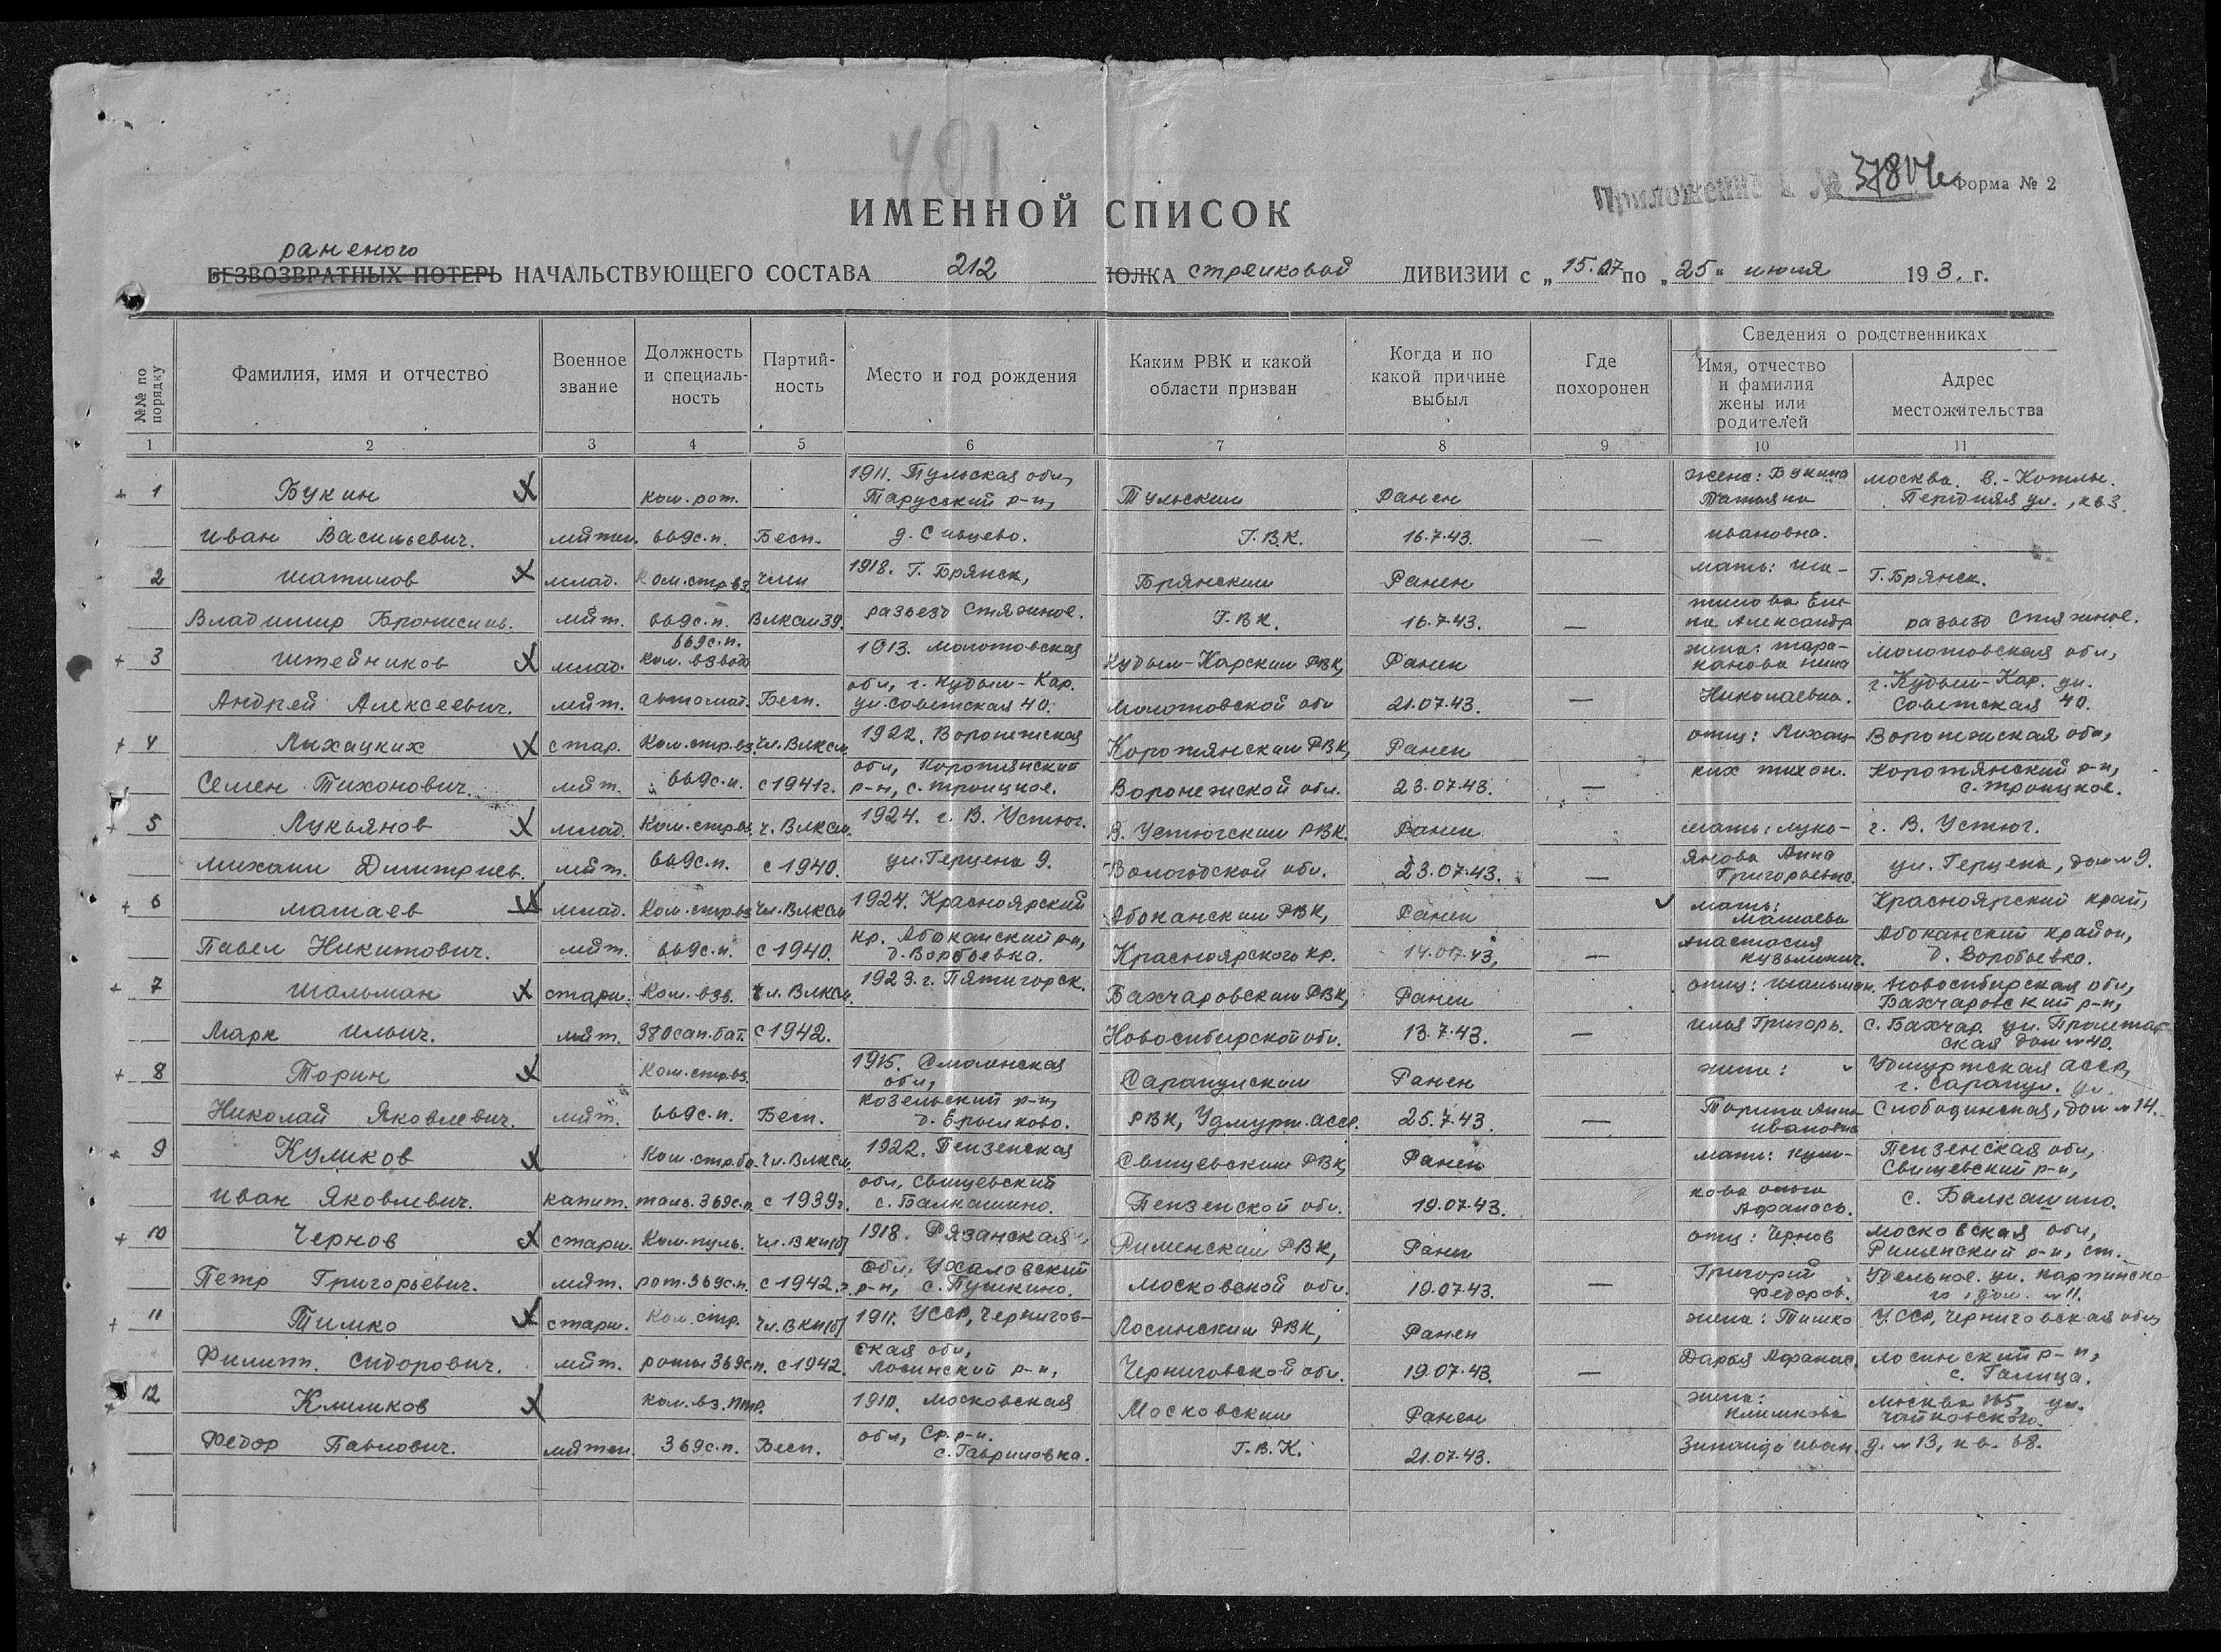 401
Приложение к № 37804с Форма № 2
ИМЕННОЙ СПИСОК
раненого
БЕЗВОЗВРАТНЫХ ПОТЕРЬ НАЧАЛЬСТВУЮЩЕГО СОСТАВА 212 ПОЛКА стрелковой ДИВИЗИИ с „15.07 по „25" июля 193.г.
№№ по порядку
Фамилия, имя и отчество
Военное звание
Должность и специальность
Партийность
Место и год рождения
Каким РВК и какой области призван
Когда и по какой причине выбыл
Где похоронен
Сведения о родственниках
Имя, отчество и фамилия жены или родителей
Адрес местожительства
1 2 3 4 5 6 7 8 9 10 11
1 Букин ком. рот. 1911. Тульская обл, Тарусский р-н, Тульским Ранен жена: Букина Татьяна Москва. В.-Котлы.
Иван Васильевич. л-йтен. 669с.п. Бесп. д. Сивцево. Г.В.К. 16.7.43. — Ивановна. ул., кв3.
2 Шатилов млад. Ком.стр.вз. член 1918. Г. Брянск, Брянским Ранен мать: Ша- Г. Брянск.
Владимир Бронислав. л-йт. 669с.п. ВЛКСМ 39. разьезд Стяжное. Г.ВК. 16.7.43. — тилова Александр разьезд Стяжное.
3 Штейников млад. 669с.п. Ком. взвода 1913. Молотовская Кудым-Карским РВК, Ранен жена: Тара-канова Нина Молотовская обл,
Андрей Алексеевич. л-йт. автомат. Бесп. обл, г. Кудым-Кар. ул. Советская 40. Молотовской обл 21.07.43. — Николаевна. г. Кудым-Кар. ул. Советская 40.
4 Лыхацких стар. Ком.стр.вз. Чл. ВЛКСМ 1922. Воронежская Коротякским РВК, Ранен отец: Лыхац- Воронежская обл,
Семен Тихонович. л-йт. 669с.п. с 1941г. обл, р-н, с. Троицкое. Воронежской обл. 23.07.43. — ких Тихон. р-н, с. Троицкое.
5 Лукьянов млад. Ком.стр.вз. ч. ВЛКСМ. 1924. г. В. Устюг. В. Устюгским РВК. Ранен мать: Лукь- г. В. Устюг.
Михаил Дмитриев. л-йт. 669с.п. с 1940. ул. Герцена 9. Вологодской обл. 23.07.43. — янова Анна Григорьевна. ул. Герцена, дом №9.
6 Матаев млад. Ком.стр.вз. Чл. ВЛКСМ 1924. Красноярский Абоканским РВК, Ранен мать: Матаева Красноярский край,
Павел Никитович. л-йт. 669с.п. с 1940. кр. Абоканский р-н, д. Воробьевка. Красноярского кр. 14.07.43. — Анастасия Кузьминич. Абоканский район, д. Воробьевка.
7 Шальман старш. Ком. взв. Чл. ВЛКСМ. 1923. г. Пятигорск. Бахчаровским РВК, Ранен отец: Шальман. Новосибирская обл, Бахчаровский р-н,
Марк Ильич. л-йт. 380сап.бат. с 1942. Новосибирской обл. 13.7.43. — Илья Григорь. с. Бахчар. ул. Пролетарская дом №40.
8 Торин Ком.стр.вз. 1915. Смоленская обл, Сарапулским Ранен жена: Удмуртская АССР, г. Сарапул. ул.
Николай Яковлевич. л-йт. 669с.п. Бесп. Козельский р-н, РВК, Удмурт. АССР. 25.7.43. — Торина Анна Ивановна Слободинская, дом №14.
9 Куликов Ком.стр.ба. Чл. ВЛКСМ. 1922. Пензенская Свищевским РВК, Ранен мать: Кули- Пензенская обл, Свищевский р-н,
Иван Яковлевич. капит. таль. 369с.п. с 1939г. обл, Свищевский с. Балкашино. Пензенской обл. 19.07.43. — кова Ольга Афанась. с. Балкашино.
10 Чернов старш. Ком. пуль. Чл. ВКП(б) 1918. Рязанская РВК, Ранен отец: Чернов Московская обл, р-н, ст.
Петр Григорьевич. л-йт. рот. 369с.п. с 1942. обл, Ухоловский р-н, с. Пушкино. Московской обл. 19.07.43. — Григорий Федоров. Удельное. ул. дом. №11.
11 Тимко старш. Ком. стр. Чл. ВКП(б) 1911. УССР, Чернигов- Лосинским РВК, Ранен жена: Тимко УССР, Черниговская обл,
Филипп. Сидорович. л-йт. роты 369с.п. с 1942. ская обл, Лосинский р-н, Черниговской обл. 19.07.43. — Дарья Афанас. Лосинский р-н, с. Галица.
12 Климков ком. вз. ПТР. 1910. Московская Московским Ранен жена: Климкова Москва ул. Чайковского.
Федор Павлович. л-йтен. 369с.п. Бесп. обл, Ср. р-н. с. Гавриловка. Г.В.К. 21.07.43. Зинаида Иван. д. №13, кв. 68.